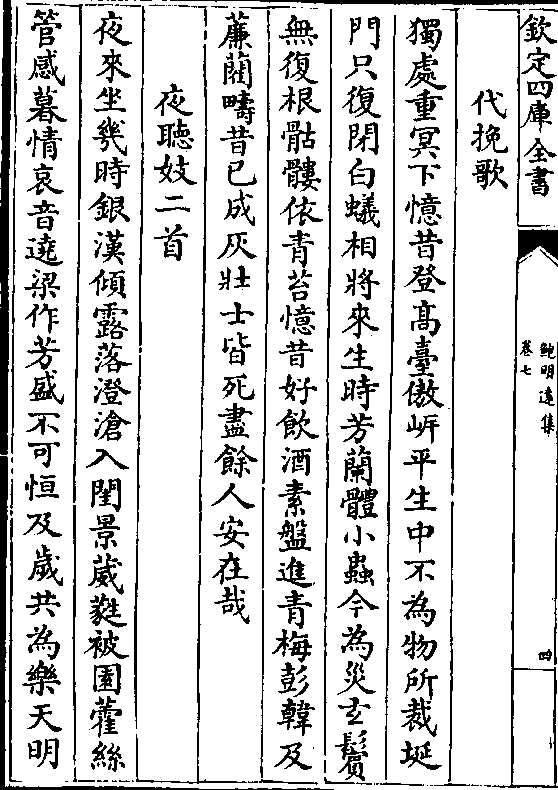 欽定四庫全書
鮑明遠集
卷七
四
代挽歌
獨處重冥下憶昔登髙臺傲岍平生中不為物所裁埏
門只復閉白蟻相將來生時芳蘭體小蟲今為災玄鬢
無復根骷髏依青苔憶昔好飲酒素盤進青梅彭韓及
薕藺疇昔已成灰壯士皆死盡餘人安在哉
夜聽妓二首
夜來坐幾時銀漢傾露落澄滄入閨景葳蕤被園藿絲
管感暮情哀音遶梁作芳盛不可恒及歲共為樂天明